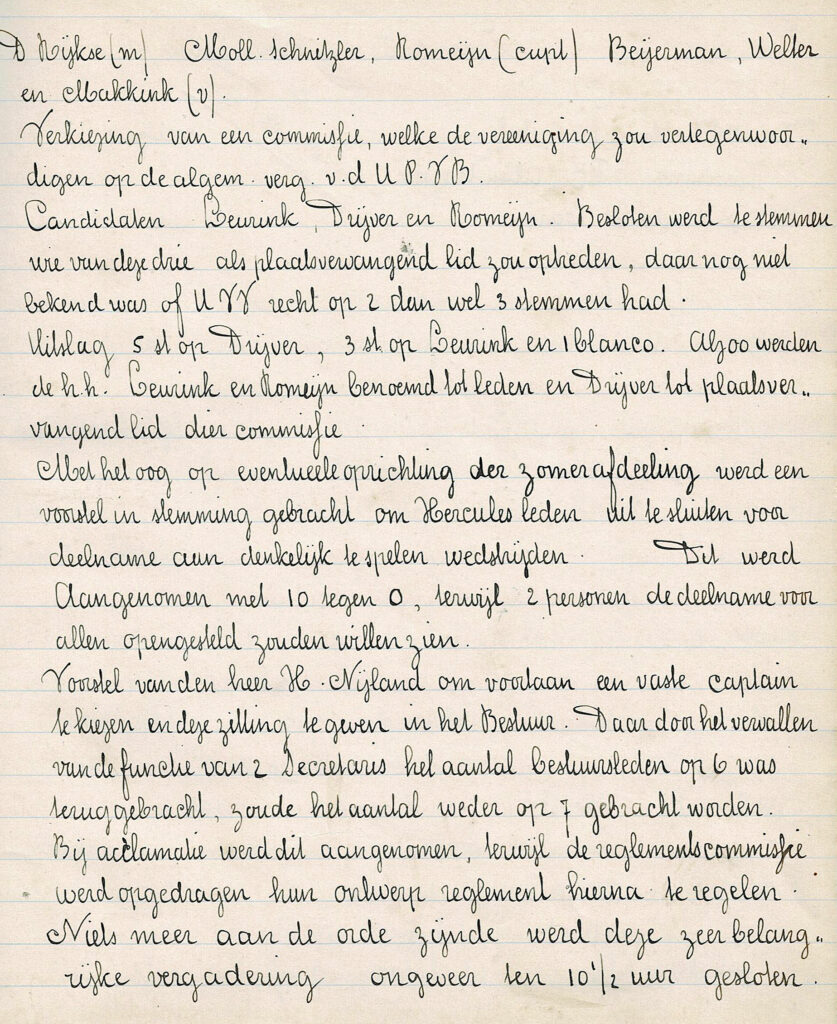 D Rijkse (m) Moll. Schnitzler, Romeijn (capt) Beijerman, Welter
en Makkink (v).
Verkiezing van een commissie, welke de vereeniging zou vertegenwoor„
digen op de algem. verg. v.d U P. V B.
Candidaten Leurink, Drijver en Romeijn. Besloten werd te stemmen
wie van deze drie als plaatsvervangend lid zou optreden, daar nog niet
bekend was of U V V recht op 2 dan wel 3 stemmen had.
Uitslag 5 st op Drijver, 3 st op Leurink en 1 blanco. Alzoo werden
de h.h. Leurink en Romeijn benoemd tot leden en Drijver tot plaatsver„
vangend lid dier commissie
Met het oog op eventueele oprichting der zomerafdeeling werd een
voorstel in stemming gebracht om Hercules leden uit te sluiten voor
deelname aan denkelijk te spelen wedstrijden. Dit werd
Aangenomen met 10 tegen 0, terwijl 2 personen de deelname voor
allen opengesteld zouden willen zien.
Voorstel van den heer H. Nijland om voortaan een vaste captain
te kiezen en deze zitting te geven in het Bestuur. Daar door het vervallen
van de functie van 2 Secretaris het aantal bestuursleden op 6 was
teruggebracht, zoude het aantal weder op 7 gebracht worden.
Bij acclamatie werd dit aangenomen, terwijl de reglementscommissie
werd opgedragen hun ontwerp reglement hierna te regelen.
Niets meer aan de orde zijnde werd deze zeer belang„
rijke vergadering ongeveer ten 10 1/2 uur gesloten.